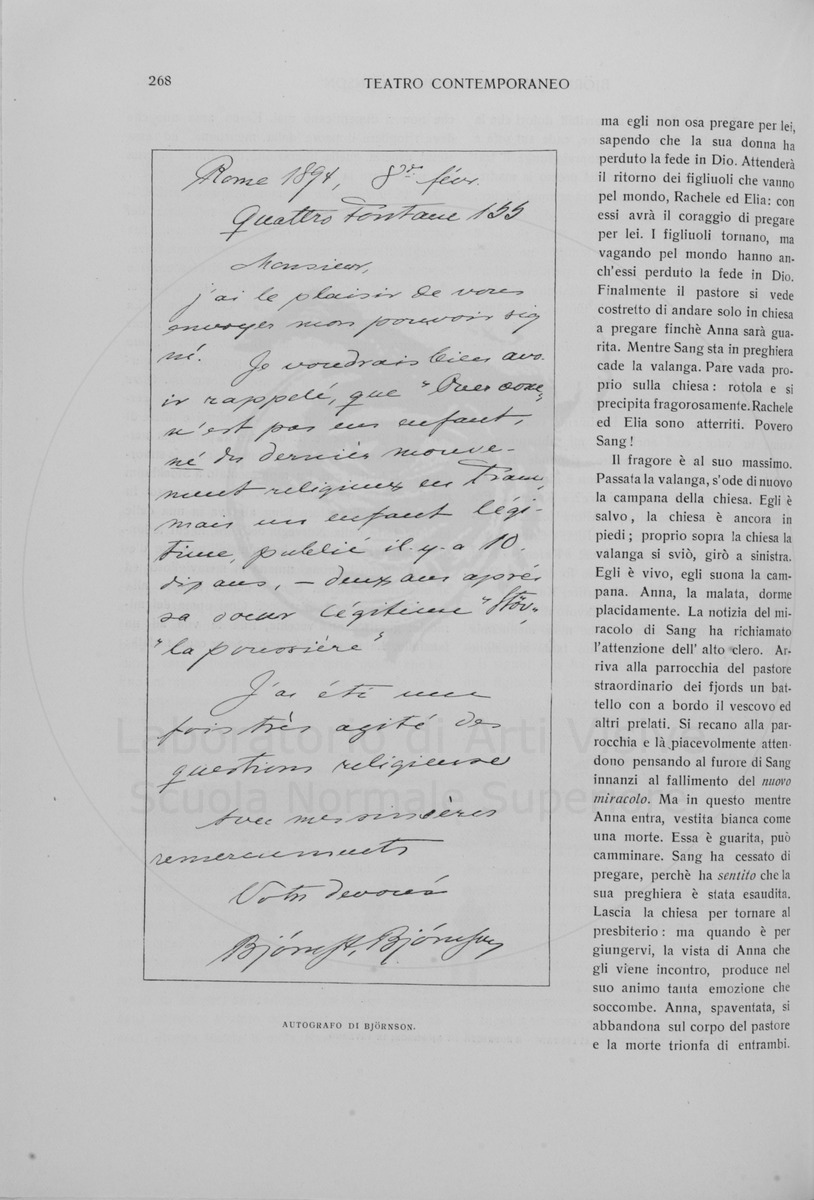 268
TEATRO CONTEMPORANEO
Rome 1894, 8 févr.
Quattro Fontane 155
Monsieur,
j'ai le plaisir de vous
envoyer mon pouvoir sig
né. Je voudrais bien avo
ir rappelé, que
n'est pas un enfant,
né du dernier mouve-
ment religieux en
mais un enfant légi-
time, publié il-y-a 10.
dix ans, – deux ans après
sa soeur légitime "Stöv",
"la poussière"
J'ai été une
fois très agité des
questions religieuse
Avec mes sincères
remerciements
Votre devoué
Björnst. Björnson
AUTOGRAFO DI BJÖRNSON.
ma egli non osa pregare per lei,
sapendo che la sua donna ha
perduto la fede in Dio. Attenderà
il ritorno dei figliuoli che vanno
pel mondo, Rachele ed Elia: con
essi avrà il coraggio di pregare
per lei. I figliuoli tornano, ma
vagando pel mondo hanno an-
ch'essi perduto la fede in Dio.
Finalmente il pastore si vede
costretto di andare solo in chiesa
a pregare finchè Anna sarà gua-
rita. Mentre Sang sta in preghiera
cade la valanga. Pare vada pro-
prio sulla chiesa: rotola e si
precipita fragorosamente. Rachele
ed Elia sono atterriti. Povero
Sang!
Il fragore è al suo massimo.
Passata la valanga, s'ode di nuovo
la campana della chiesa. Egli è
salvo, la chiesa è ancora in
piedi; proprio sopra la chiesa la
valanga si sviò, girò a sinistra.
Egli è vivo, egli suona la cam-
pana. Anna, la malata, dorme
placidamente. La notizia del mi-
racolo di Sang ha richiamato
l'attenzione dell' alto clero. Ar-
riva alla parrocchia del pastore
straordinario dei fjords un bat-
tello con a bordo il vescovo ed
altri prelati. Si recano alla par-
rocchia e là piacevolmente atten-
dono pensando al furore di Sang
innanzi al fallimento del nuovo
miracolo. Ma in questo mentre
Anna entra, vestita bianca come
una morte. Essa è guarita, può
camminare. Sang ha cessato di
pregare, perchè ha sentito che la
sua preghiera è stata esaudita.
Lascia la chiesa per tornare al
presbiterio: ma quando è per
giungervi, la vista di Anna che
gli viene incontro, produce nel
suo animo tanta emozione che
soccombe. Anna, spaventata, si
abbandona sul corpo del pastore
e la morte trionfa di entrambi.
Laboratorio di Arti Visive
Scuola Normale Superiore